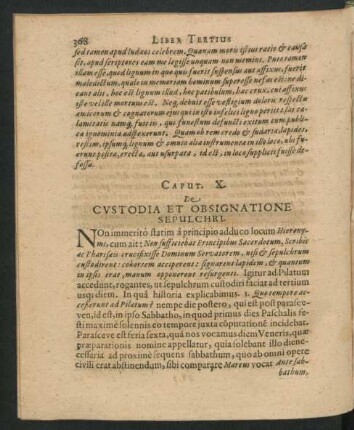 368 LIBER TERTIUS
sed tamen apud Iudæos celebrem. Quanam moris istius ratio & causa
sit, apud scriptores eam me legisse unquam non memini. Puto tamen
illam esse, quod lignum in quo quis fuerit suspensus aut affixus, fuerit
maledictum, quale in memoriam hominum superesse nefas est: ne di-
cant alii, hoc est lignum illud, hoc patibulum, hæc crux, cui affixus
iste vel ille mortuus est. Neq, debuit esse vestigium doloris respectu
amicorum & cognatorum ejus qui in isto infelici ligno periit: sat ca-
lamitatis namq, fuerit, quos funestum defuncti exitum cum publi-
ca ignominia adspexerunt. Quam ob rem credo & sudaria, lapides,
restim, ipsumq, lignum & omnia alia instrumenta in illo loco, ubi fu-
erunt posita, erecta, aut usurpata, id est, in loco supplicii fuisse de-
fossa.
CAPUT. X.
De
CVSTODIA ET OBSIGNATIONE
SEPULCHRI.
NOn immeritò statim à principio adduco locum Hierony-
mi, cum ait: Non sufficiebat Principibus Sacerdotum, Scribis
ac Pharisæis crucifixisse Dominum Servatorem, nisi & sepulchrum
custodirent: cohortem acciperent: signarent lapidem, & quantum
in ipsis erat, manum opponerent resurgenti. Igitur ad Pilatum
accedunt, rogantes, ut sepulchrum custodiri faciat ad tertium
usq; diem. In quâ historiâ explicabimus. 1. Quo tempore ac-
cesserunt ad Pilatum? nempe die postero, qui est post parasce-
ven, id est, in ipso Sabbatho, in quod primus dies Paschalis fe-
sti maximè solennis eo tempore juxta cōputationē incidebat.
Parasceve est feria sexta, quā nos vocamus diem Veneris, quæ
præparationis nomine appellatur, quia solebant illo die ne-
cessaria ad proximè sequens sabbathum, quo ab omni opere
civili erat abstinendum, sibi comparare Marcus vocat Ante sab-
bathum,